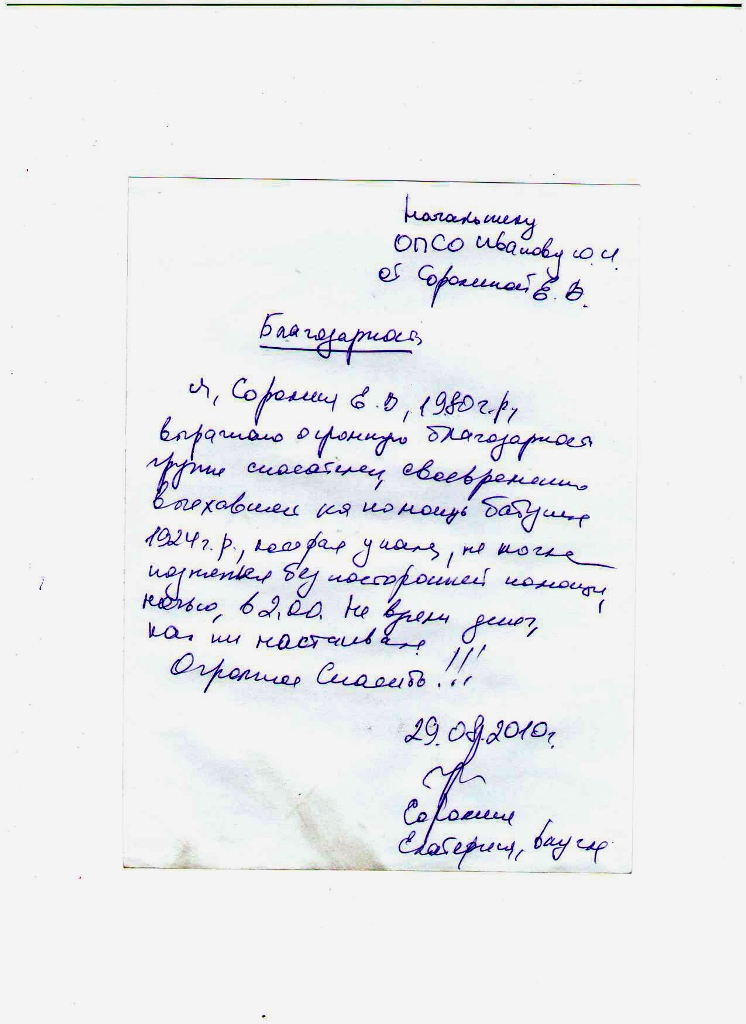 Начальнику
ОПСО Иванову Ю.И.
от Сорокиной Е.В.
Благодарность
Я, Сорокина Е.В, 1980г.р,
выражаю огромную благодарность
группе спасателей, своевременно
выехавшей на помощь бабушке
1924г.р., которая упала, не могла
подняться без посторонней помощи,
ночью, в 2.00. Не взяли денег,
как ни настаивала
Огромное Спасибо!!!
29.08.2010г.
Сорокина
Екатерина, внучка